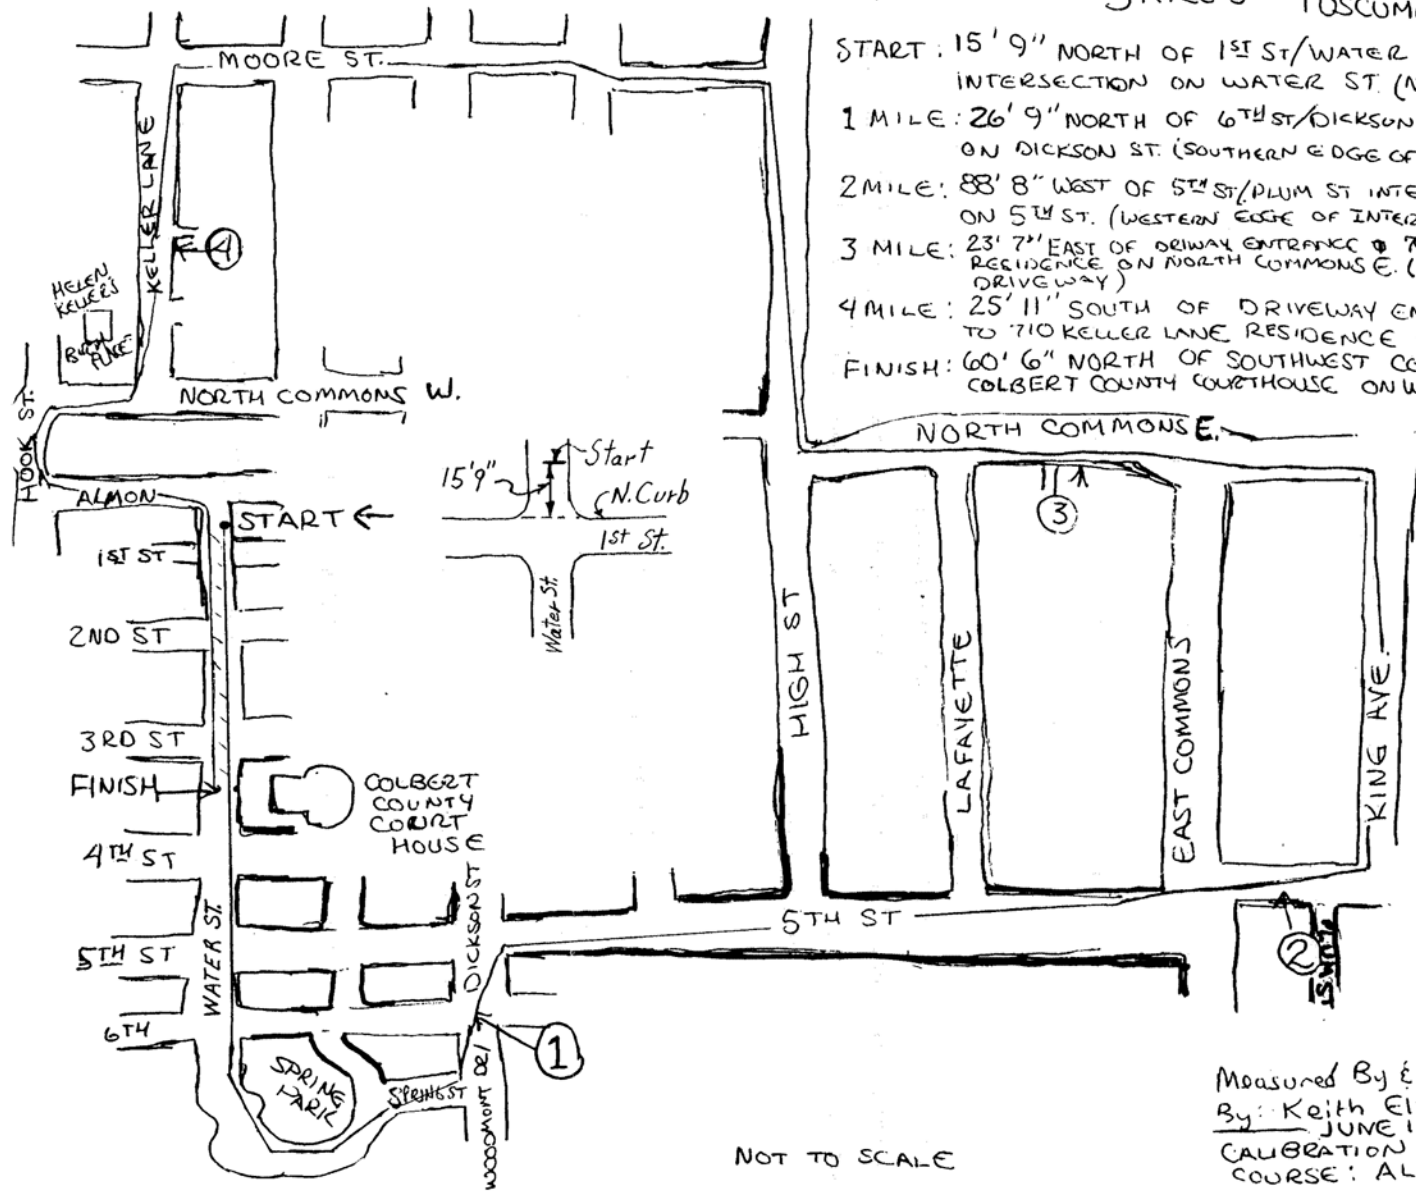 START: 15' 9" NORTH OF 1ST ST/WATER
INTERSECTION ON WATER ST. (N
1 MILE: 26' 9" NORTH OF 6TH ST/DICKSON
ON DICKSON ST. (SOUTHERN EDGE OF
2 MILE: 88' 8" WEST OF 5TH ST/PLUM ST INTE
ON 5TH ST. (WESTERN EDGE OF INTER
3 MILE: 23' 7" EAST OF DRIWAY ENTRANCE
RESIDENCE ON NORTH COMMONS E. (
DRIVEWAY)
4 MILE: 25' 11" SOUTH OF DRIVEWAY EN
TO 710 KELLER LANE RESIDENCE
FINISH: 60' 6" NORTH OF SOUTHWEST CO
COLBERT COUNTY COURTHOUSE ON W
MOORE ST.
KELLER LANE
4
HELEN
KELLER'S
BIRTH
PLACE
HOOK ST.
NORTH COMMONS W.
NORTH COMMONS E.
ALMON
START
15'9"
Start
N. Curb
1st St.
Water St.
3
1ST ST
2ND ST
3RD ST
FINISH
4TH ST
5TH ST
6TH
WATER ST.
COLBERT
COUNTY
COURT
HOUSE
DICKSON ST
HIGH ST
LAFAYETTE
EAST COMMONS
KING AVE.
5TH ST
2
PLUM ST
1
SPRING
PARK
SPRING ST
WOODMONT DR
NOT TO SCALE
Measured By &
By: Keith El
JUNE 1
CALIBRATION
COURSE: AL